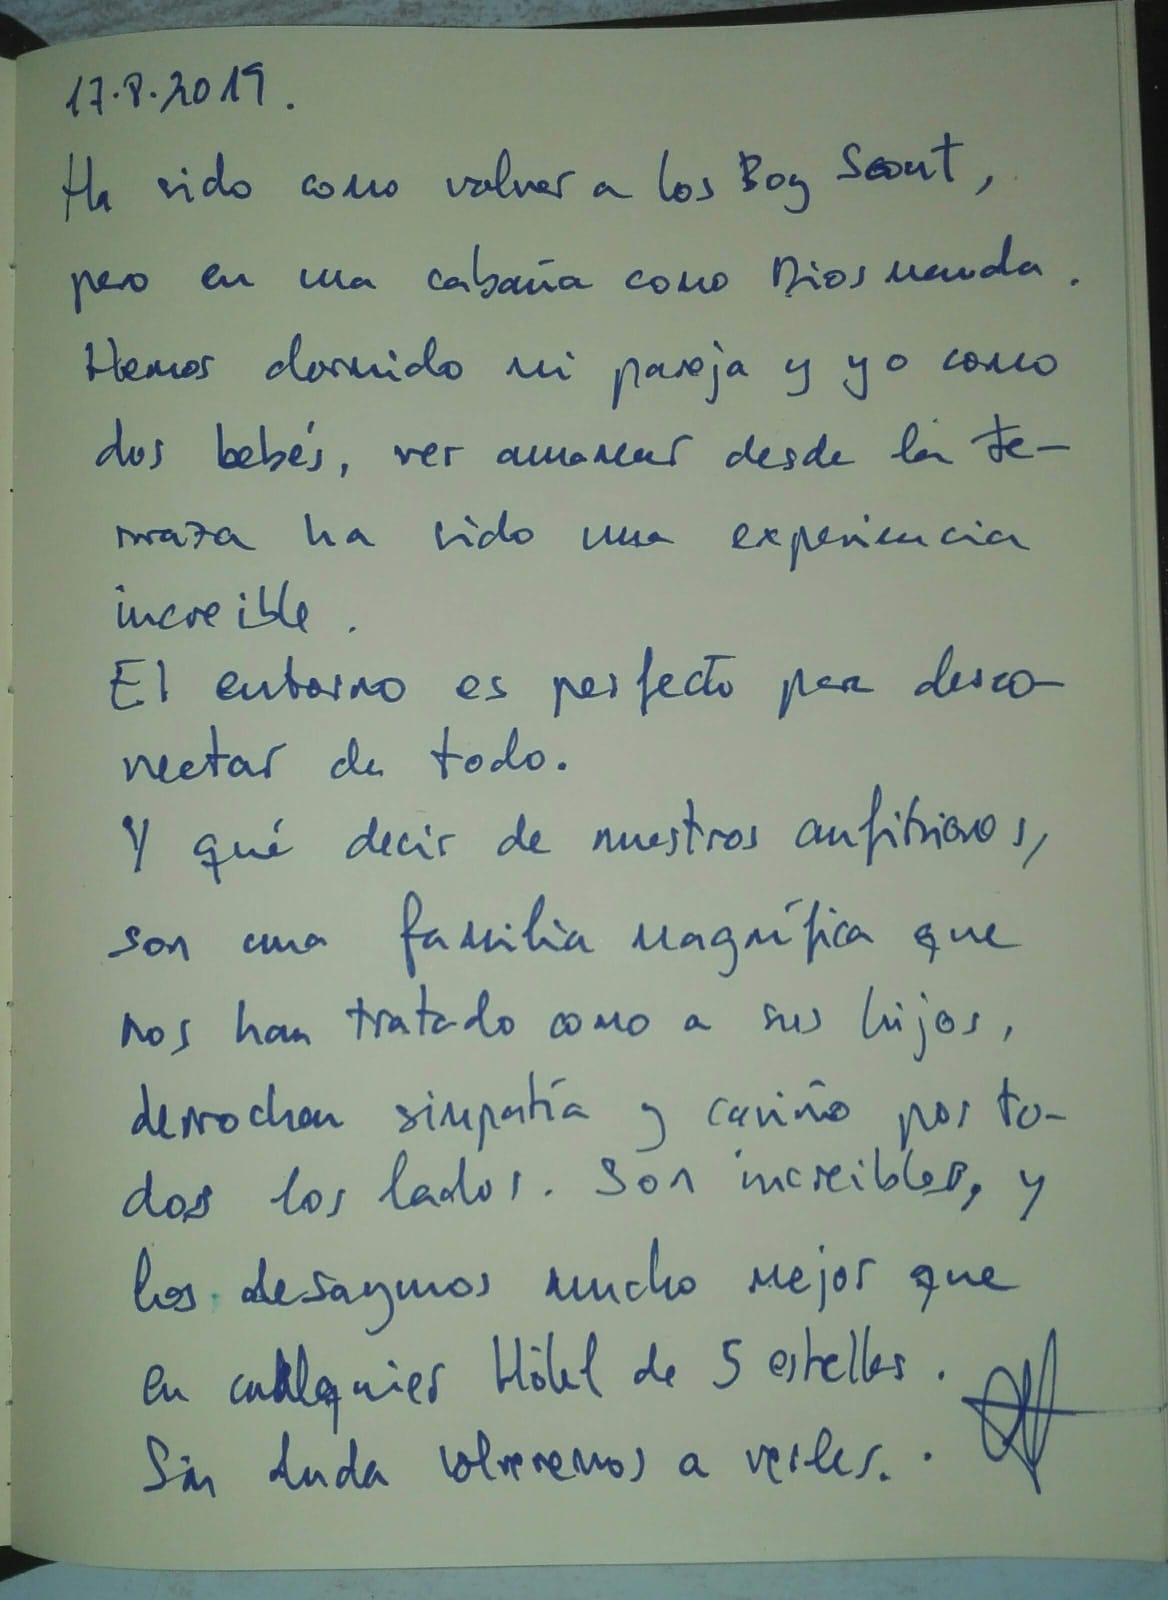 17.8.2019.
Ha sido como volver a los Boy Scout,
pero en una cabaña como Dios manda.
Hemos dormido mi pareja y yo como
dos bebés, ver amanecer desde la te-
rraza ha sido una experiencia
increible.
El entorno es perfecto para desco-
nectar de todo.
Y qué decir de nuestros anfitriones,
son una familia magnífica que
nos han tratado como a sus hijos,
derrochan simpatía y cariño por to-
dos los lados. Son increibles, y
los desayunos mucho mejor que
en cualquier Hôtel de 5 estellas.
Sin duda volveremos a verles..